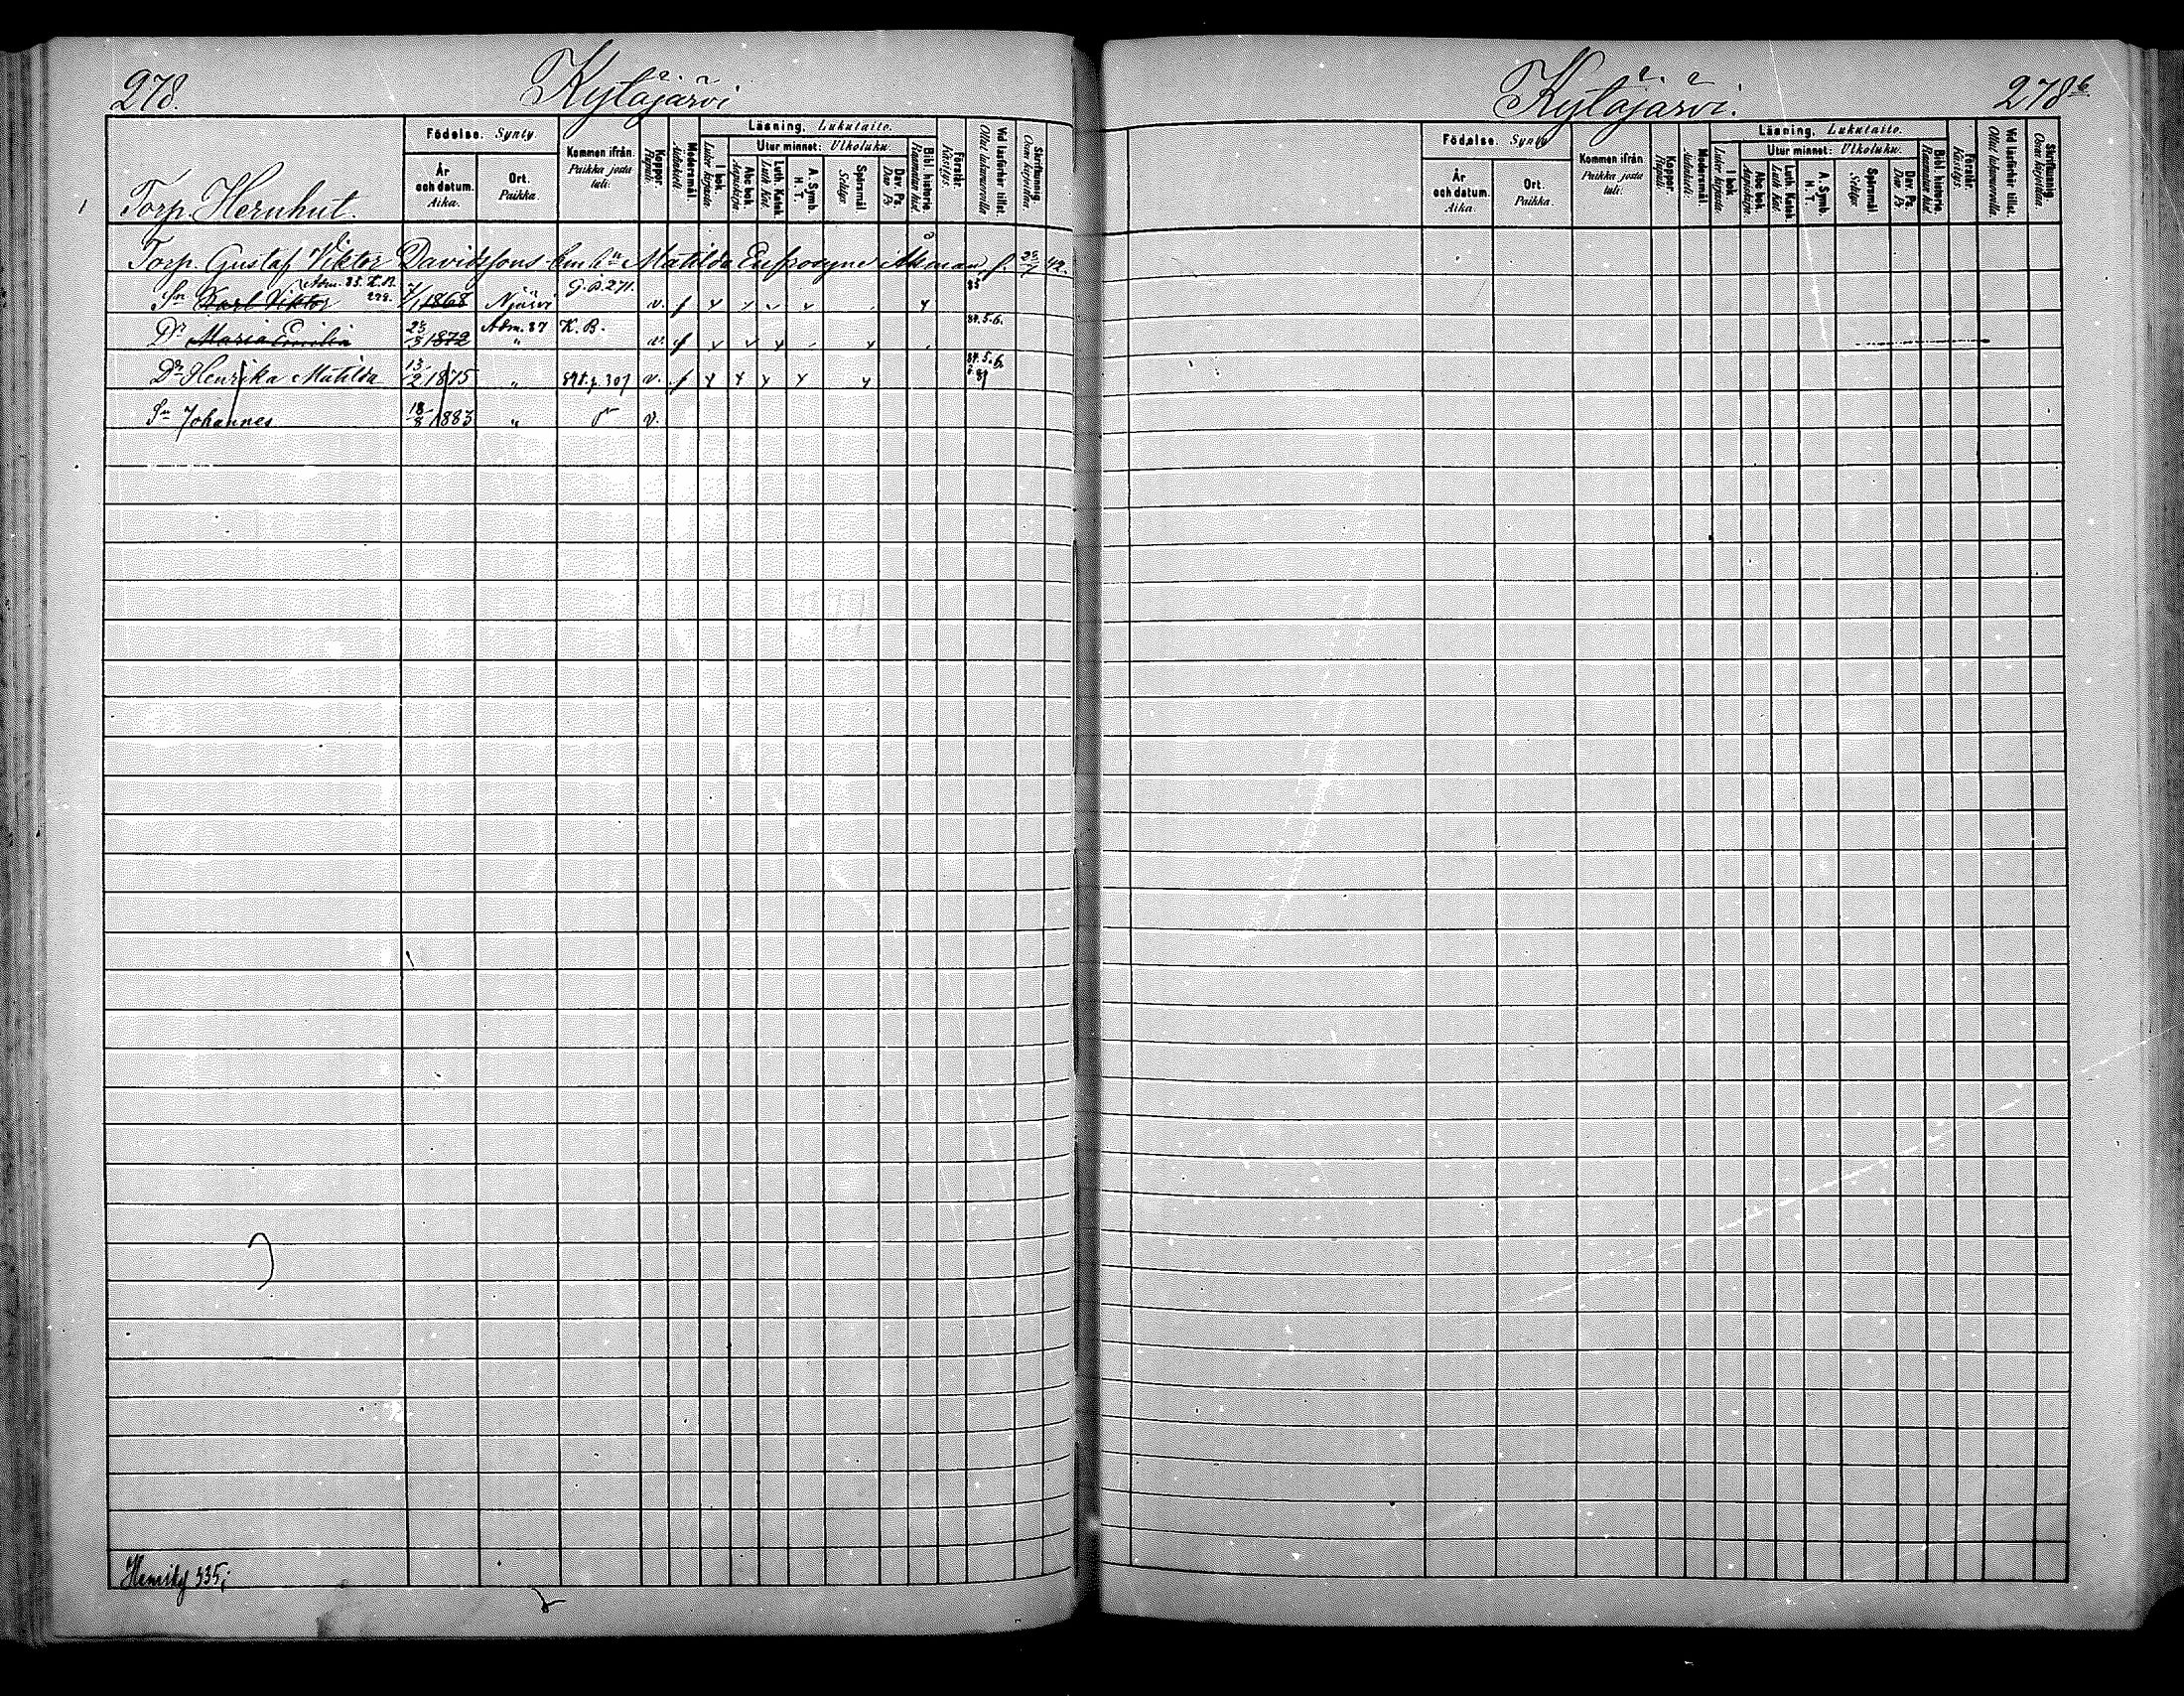 278.
Kytäjärvi
Torp. Hernhut.
Födelse. Synty.
År och datum. Aika.
Ort. Paikka.
Kommen ifrån. Paikka josta tuli.
Koppor. Rupuli.
Modersmål. Äidinkieli.
Läsning. Lukutaito.
I bok. Lukee kirjasta.
Utur minnet: Ulkoluku.
Abc bok. Aapiskirja.
Luth. Katek. Luth. Kat.
A. Symb. H. T.
Spörsmål. Selitys.
Dav. Ps. Dav. Ps.
Bibl. historie. Raamatun hist.
Förstår. Käsitys.
Vid läsförhör tillst. Ollut lukukunnilla
Skrifkunnig. Osaa kirjoittaa.
Torp. Gustaf Viktor Davidssons Matilda Eufrosyne f. 42.
Sn Karl Viktor Adm. 85. K.B. 278. 1/1 1868 Njärvi J.B. 271. v. f 85
Dr Maria Emilia 23/3 1872 Adm. 87 K. B. " v. f 84.5.6.
Dr Henrika Matilda 13/2 1875 " v. f 84.5.6.
Sn Johannes 18/8 1883 " v.
335;
Kytäjärvi.
278b.
Födelse. Synty
År och datum. Aika.
Ort. Paikka.
Kommen ifrån. Paikka josta tuli.
Koppor. Rupuli.
Modersmål. Äidinkieli.
Läsning. Lukutaito.
I bok. Lukee kirjasta.
Utur minnet: Ulkoluku.
Abc bok. Aapiskirja.
Luth. Katek. Luth. Kat.
A. Symb. H. T.
Spörsmål. Selitys.
Dav. Ps. Dav. Ps.
Bibl. historie. Raamatun hist.
Förstår. Käsitys.
Skrifkunnig. Osaa kirjoittaa.